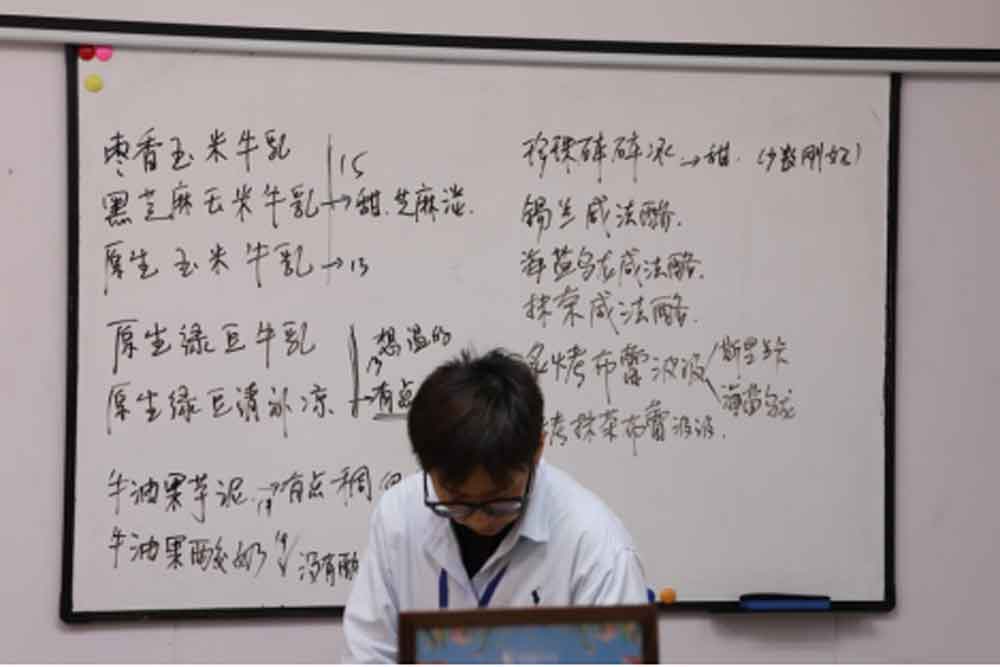 枣香玉米牛乳
15
黑芝麻玉米牛乳→甜.芝麻淡.
原生玉米牛乳→13
原生绿豆牛乳
想温的
13
原生绿豆清冰凉
有点
牛油果芋泥.→有点稠
牛油果酸奶
没有
珍珠碎碎冰→甜.(少数刚好)
锡兰咸法酪.
海盐乌龙咸法酪.
抹茶咸法酪.
烤布蕾波波
斯里兰卡
海盐乌龙
烤抹茶布蕾波波.